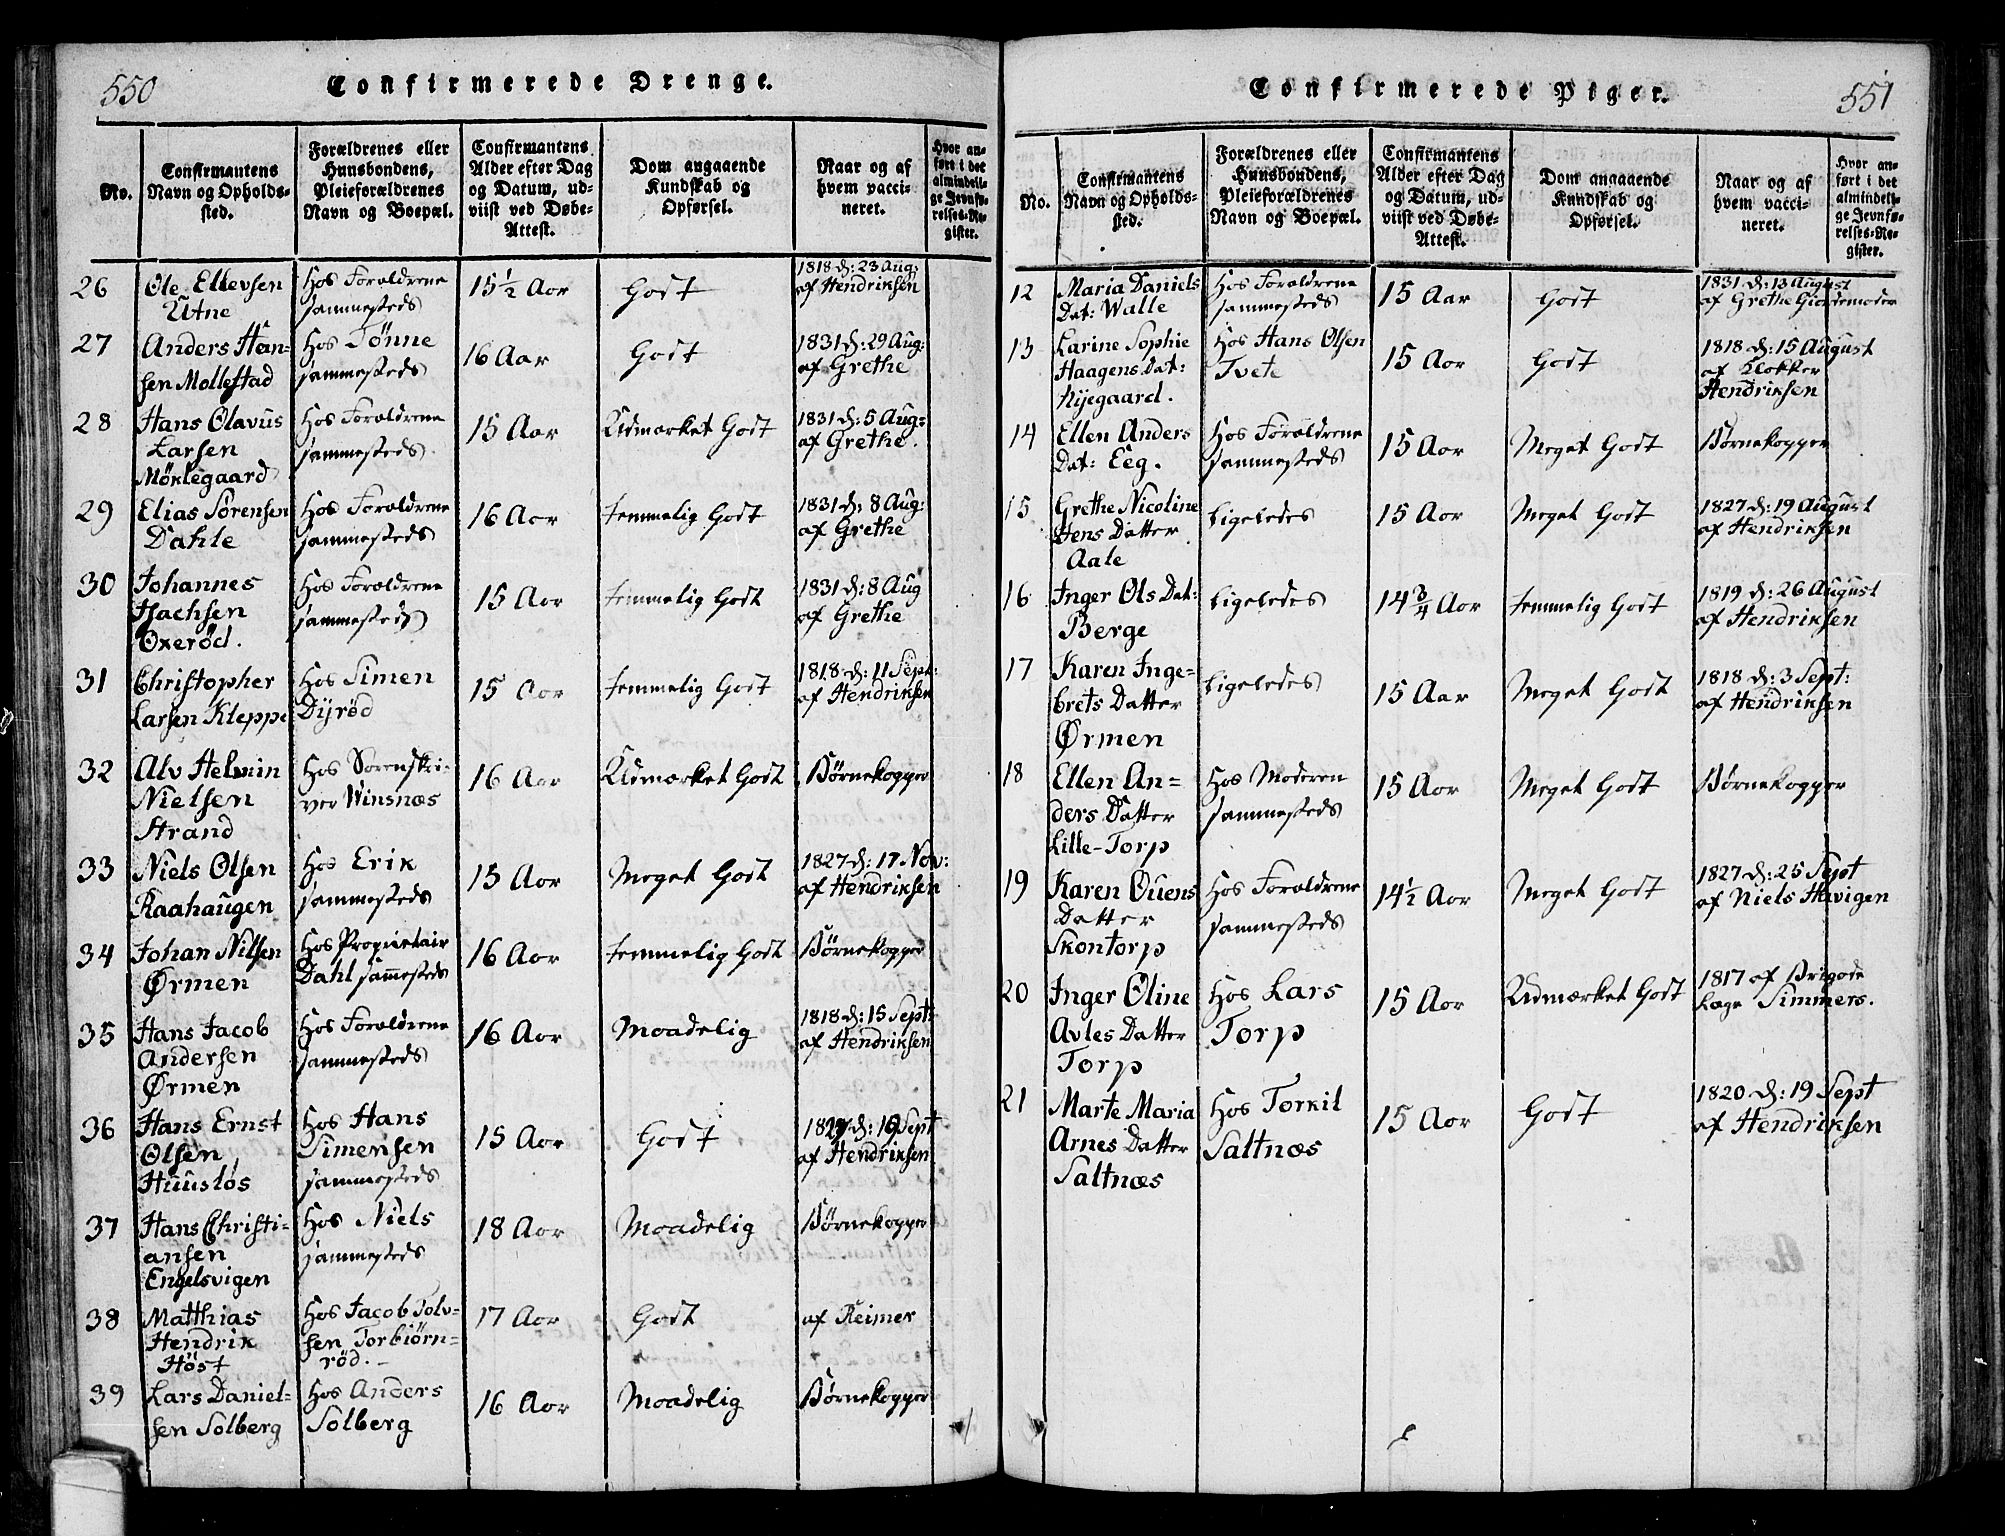 550
Confirmerede Drenge.
No.
Confirmantens
Navn og Opholds-
sted.
Forældrenes eller
Huusbondens,
Pleieforældrenes
Navn og Boepæl.
Confirmantens
Alder efter Dag
og Datum, ud-
viist ved Døbe-
Attest.
Dom angaaende
Kundskab og
Opførsel.
Naar og af
hvem vacci-
neret.
Hvor an-
ført i det
almindeli-
ge Jevnfø-
relses-Re-
gister.
26
Ole Ellevsen
Utne
Hos Forældrene
sammesteds
15½ Aar
Godt
1818 d: 23 Aug:
af Hendriksen
27
Anders Han-
sen Mollestad
Hos Tønne
sammesteds
16 Aar
Godt
1831 d: 29 Aug:
af Grethe
28
Hans Olavus
Larsen
Möklegaard
Hos Forældrene
sammesteds.
15 Aar
Udmærket Godt
1831 d: 5 Aug:
af Grethe.
29
Elias Sörensen
Dahle
Hos Forældrene
sammesteds
16 Aar
temmelig Godt
1831 d: 8 Aug:
af Grethe
30
Johannes
Isachsen
Oxeröd.
Hos Forældrene
sammesteds
15 Aar
temmelig Godt
1831 d: 8 Aug
af Grethe
31
Christopher
Larsen Kleppe
Hos Simen
Dyröd
15 Aar
temmelig Godt
1818 d: 11 Sept:
af Hendriksen
32
Alv Helmin
Nielsen
Strand
Hos Sorenskri-
ver Winsnæs
16 Aar
Udmærket Godt
Börnekopper
33
Niels Olsen
Raahaugen
Hos Erik
sammesteds
15 Aar
Meget Godt
1827 d: 17 Nov:
af Hendriksen
34
Johan Nilsen
Ørmen
Hos Propietair
Dahl sam̄esteds
16 Aar
temmelig Godt
Börnekopper
35
Hans Jacob
Andersen
Ørmen
Hos Forældrene
sammesteds
16 Aar
Maadelig
1818 d: 15 Sept:
af Hendriksen
36
Hans Ernst
Olsen
Huuslös
Hos Hans
Simensen
sammesteds
15 Aar
Godt
Sept
af Hendriksen
37
Hans Christi-
ansen
Engelsvigen
Hos Niels
sammesteds
18 Aar
Maadelig
Börnekopper
38
Matthias
Hendrik
Höst
Hos Jacob Tolv-
sen Torbiörn-
röd.-
17 Aar
Godt
af Reimer
39
Lars Daniel-
sen Solberg
Hos Anders
Solberg
16 Aar
Maadelig
Börnekopper
551
Confirmerede Piger.
No.
Confirmantens
Navn og Opholds-
sted.
Forældrenes eller
Huusbondens,
Pleieforældrenes
Navn og Boepæl.
Confirmantens
Alder efter Dag
og Datum, ud-
viist ved Døbe-
Attest.
Dom angaaende
Kundskab og
Opførsel.
Naar og af
hvem vacci-
neret.
Hvor an-
ført i det
almindeli-
ge Jevnfø-
relses-Re-
gister.
12
Maria Daniels
Dat: Walle
Hos Forældrene
sammesteds
15 Aar
Godt
1831 d: 13 August
af Grethe Giordemoder
13
Larine Sophie
Haagens Dat:
Kijegaard.
Hos Hans Olsen
Tvete
15 Aar
Godt
1818 d: 15 August
af Klokker
Hendriksen
14
Ellen Anders
Dat: Eeg.
Hos Forældrene
sammesteds
15 Aar
Meget Godt
Börnekopper
15
Grethe Nicoline
Jens Datter
Aale
Ligeledes
15 Aar
Meget Godt
1827 d: 19 August
af Hendriksen
16
Inger Ols Dat:
Berge
Ligeledes
14¾ Aar
temmelig Godt
1819 d: 26 August
af Hendriksen
17
Karen Inge-
brets Datter
Ørmen
Ligeledes
15 Aar
Meget Godt
1818 d: 3 Sept:
af Hendriksen
18
Ellen An-
ders Datter
Lille-Torp
Hos Moderen
sammesteds
15 Aar
Meget Godt
Börnekopper
19
Karen Ouens
Datter
Skontorp
Hos Forældrene
sammesteds
14½ Aar
Meget Godt
1827 d: 25 Sept
af Niels Høvigen
20
Inger Oline
Avles Datter
Torp
Hos Lars
Torp
15 Aar
Udmærket Godt
1817 af Brigade
Læge Simmers.
21
Marte Maria
Arnes Datter
Saltnæs
Hos Torkil
Saltnæs
15 Aar
Godt
1820 d: 19 Sept
af Hendriksen